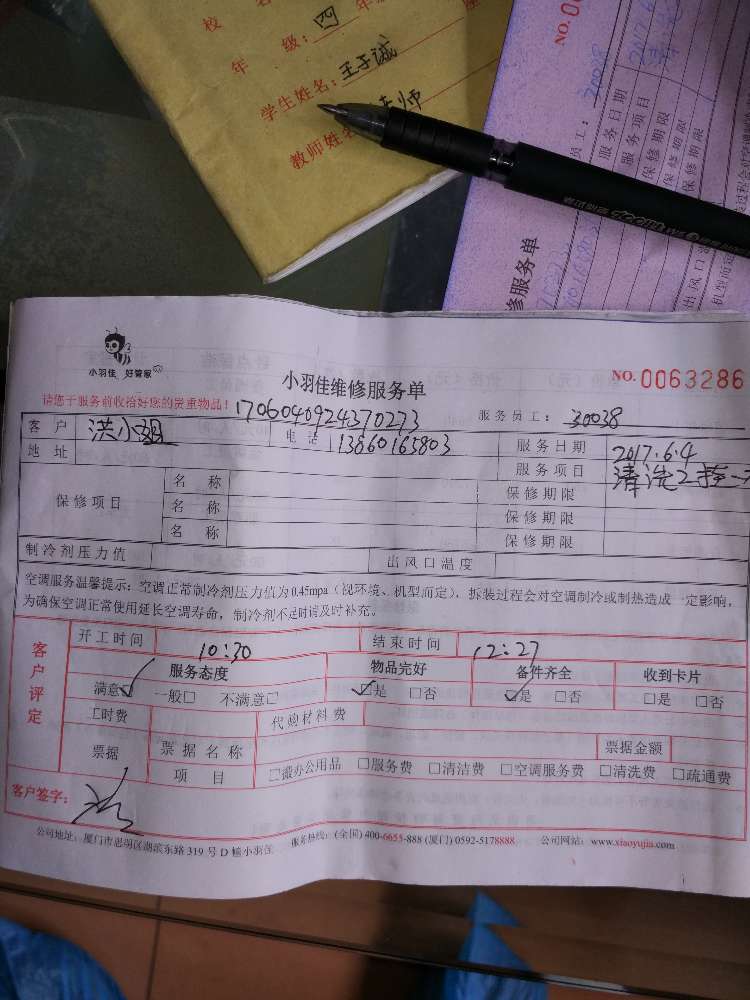 校
年 级：四
学生姓名：王子诚
教师姓名 老师
NO.
员工：30038
服务日期 2017.6.4
服务项目
保修期限
保修期限
保修期限
修服务单
出风口
机型而定
小羽佳 好管家
小羽佳维修服务单
NO. 0063286
请您于服务前收拾好您的贵重物品！ 1706040924370273 服务员工：30038
客 户 洪小姐 电 话 13860165803 服务日期 2017.6.4
地 址 服务项目 清洗2挂
保修项目 名 称 保修期限
名 称 保修期限
名 称 保修期限
制冷剂压力值 出风口温度
空调服务温馨提示：空调正常制冷剂压力值为0.45mpa（视环境、机型而定），拆装过程会对空调制冷或制热造成一定影响，
为确保空调正常使用延长空调寿命，制冷剂不足时请及时补充。
客户评定
开工时间 10:30 结束时间 12:27
服务态度 物品完好 备件齐全 收到卡片
满意☑ 一般□ 不满意□ ☑是 □否 ☑是 □否 □是 □否
工时费 代购材料费
票据 票据名称 票据金额
项 目 □搬办公用品 □服务费 □清洁费 □空调服务费 □清洗费 □疏通费
客户签字：
公司地址：厦门市思明区湖滨东路 319 号 D 幢小羽佳 服务热线：(全国) 400-6655-888 (厦门) 0592-5178888 公司网站：www.xiaoyujia.com